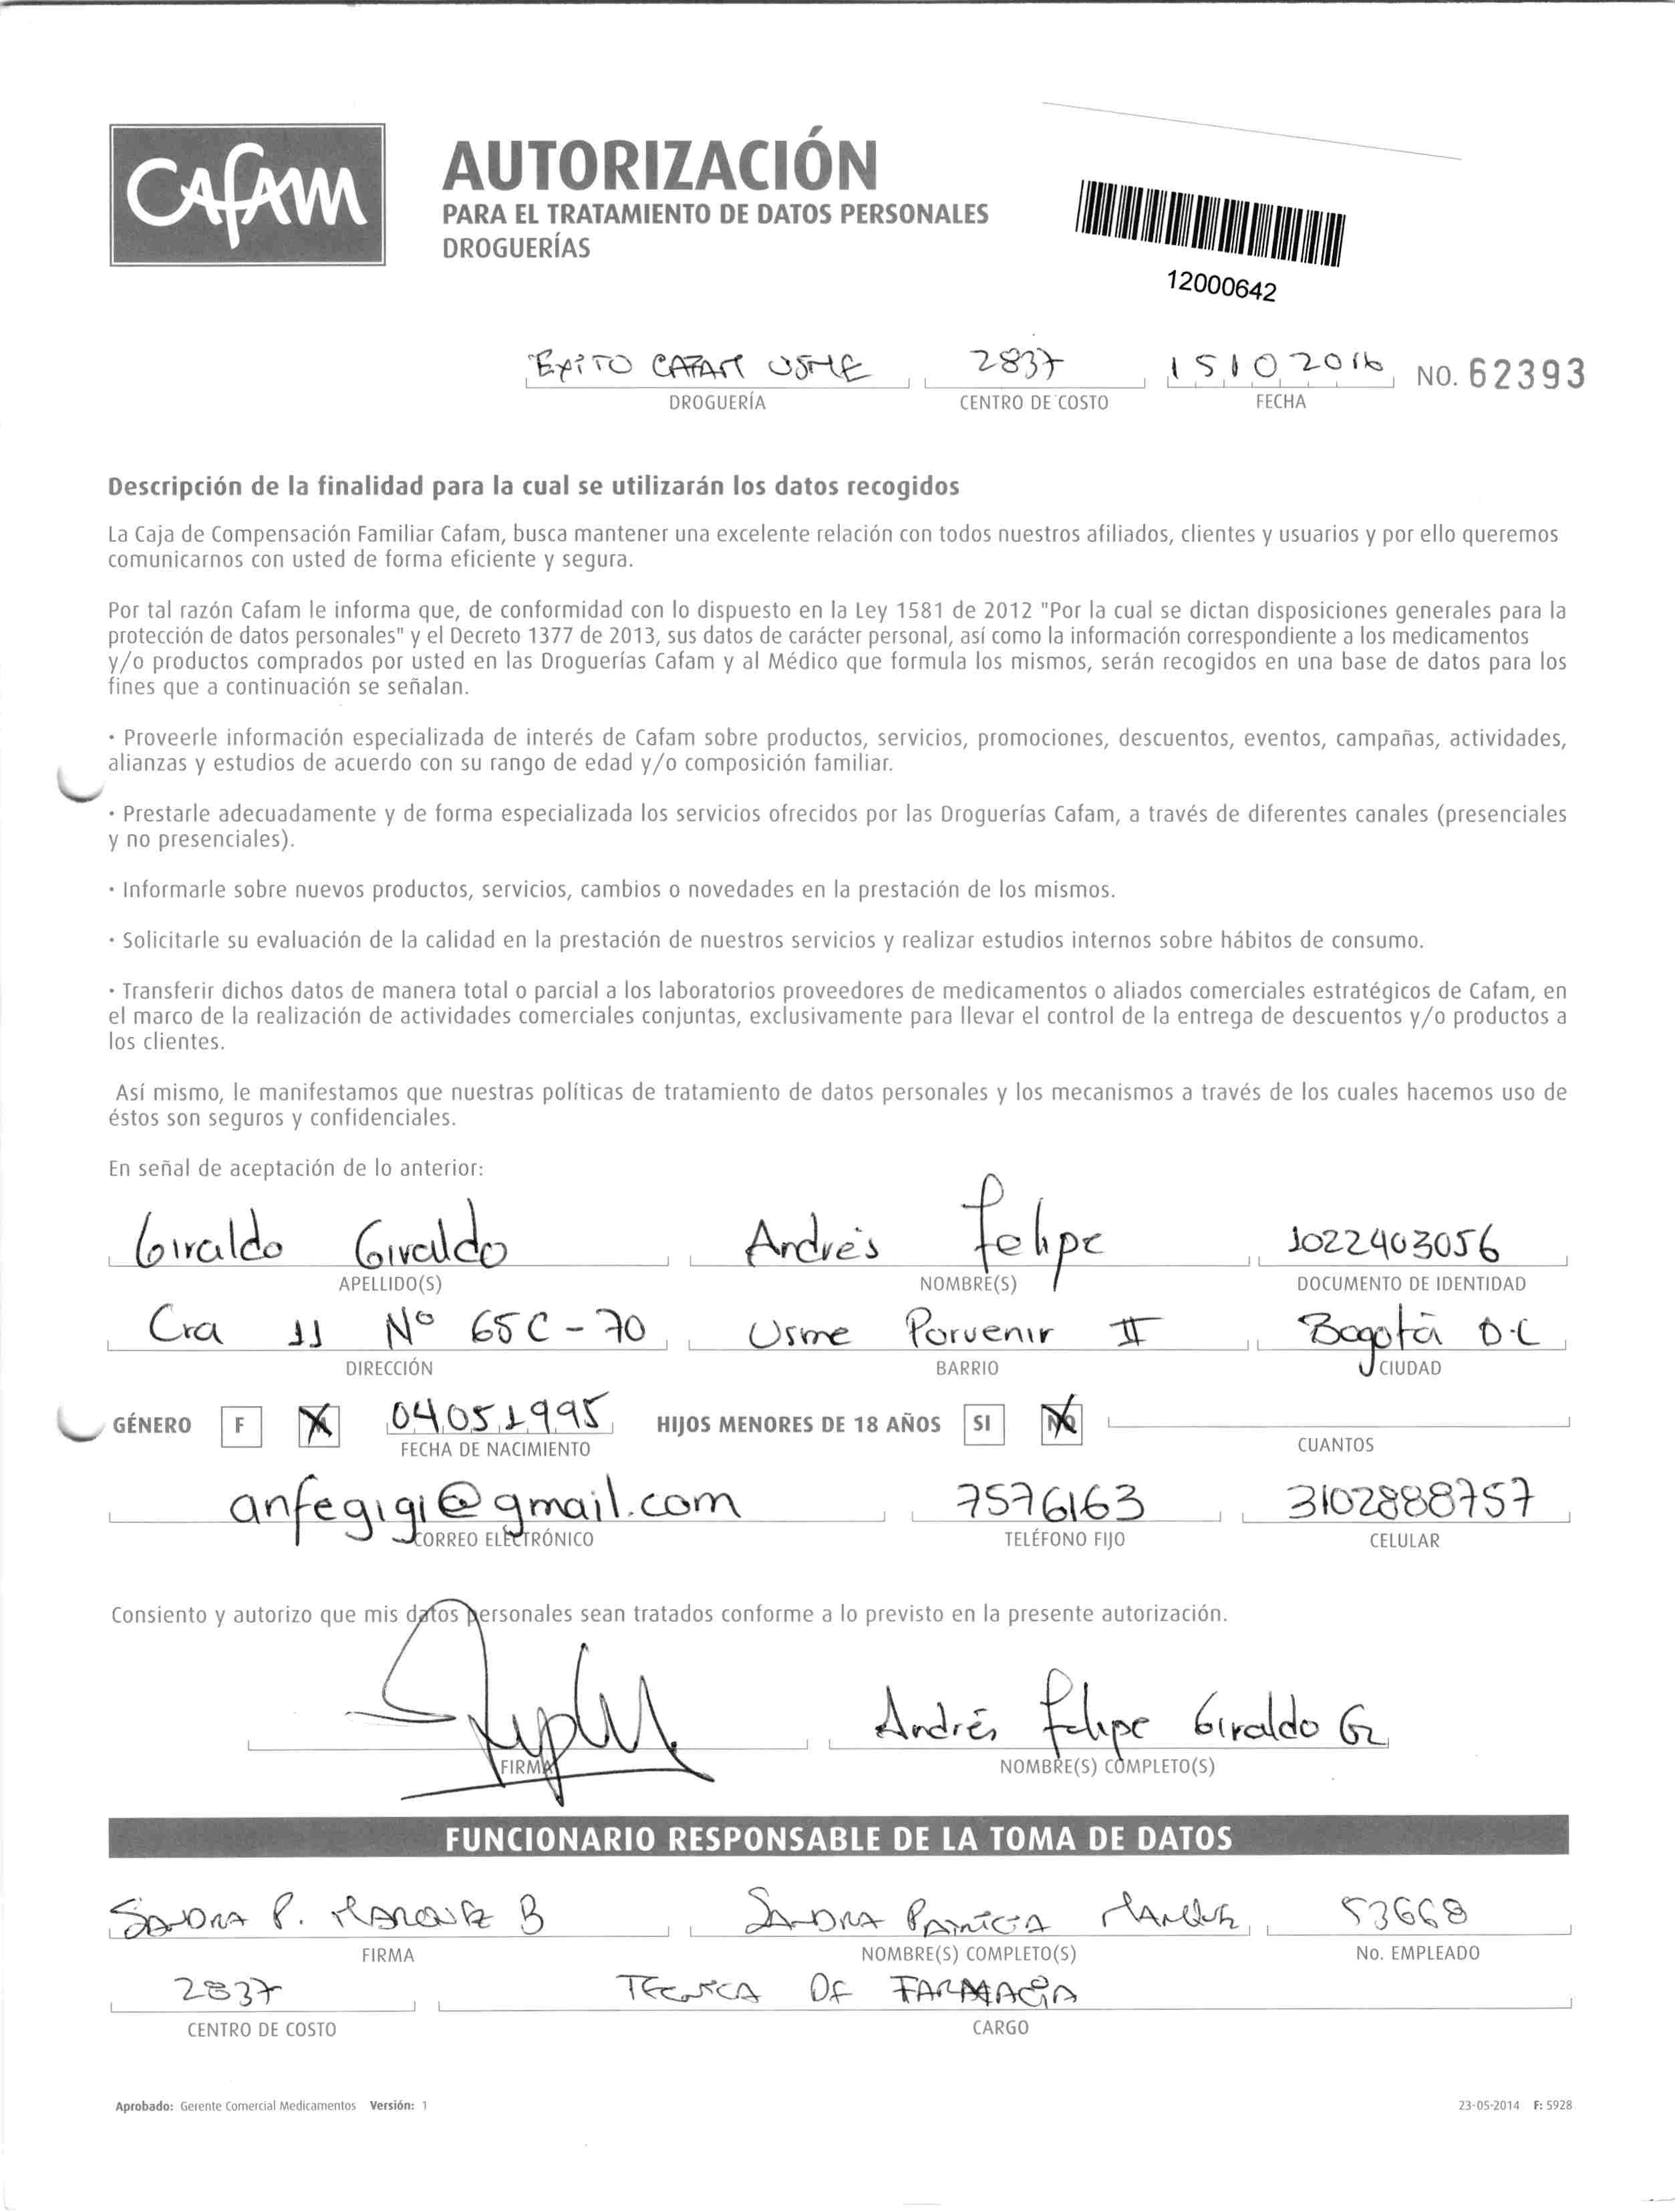 CAFAM
AUTORIZACIÓN
PARA EL TRATAMIENTO DE DATOS PERSONALES
DROGUERÍAS
12000642
EXITO CAFAM USME 2837 15102016 NO. 62393
DROGUERÍA CENTRO DE COSTO FECHA
Descripción de la finalidad para la cual se utilizarán los datos recogidos
La Caja de Compensación Familiar Cafam, busca mantener una excelente relación con todos nuestros afiliados, clientes y usuarios y por ello queremos
comunicarnos con usted de forma eficiente y segura.
Por tal razón Cafam le informa que, de conformidad con lo dispuesto en la Ley 1581 de 2012 "Por la cual se dictan disposiciones generales para la
protección de datos personales" y el Decreto 1377 de 2013, sus datos de carácter personal, así como la información correspondiente a los medicamentos
y/o productos comprados por usted en las Droguerías Cafam y al Médico que formula los mismos, serán recogidos en una base de datos para los
fines que a continuación se señalan.
· Proveerle información especializada de interés de Cafam sobre productos, servicios, promociones, descuentos, eventos, campañas, actividades,
alianzas y estudios de acuerdo con su rango de edad y/o composición familiar.
· Prestarle adecuadamente y de forma especializada los servicios ofrecidos por las Droguerías Cafam, a través de diferentes canales (presenciales
y no presenciales).
· Informarle sobre nuevos productos, servicios, cambios o novedades en la prestación de los mismos.
· Solicitarle su evaluación de la calidad en la prestación de nuestros servicios y realizar estudios internos sobre hábitos de consumo.
· Transferir dichos datos de manera total o parcial a los laboratorios proveedores de medicamentos o aliados comerciales estratégicos de Cafam, en
el marco de la realización de actividades comerciales conjuntas, exclusivamente para llevar el control de la entrega de descuentos y/o productos a
los clientes.
Así mismo, le manifestamos que nuestras políticas de tratamiento de datos personales y los mecanismos a través de los cuales hacemos uso de
éstos son seguros y confidenciales.
En señal de aceptación de lo anterior:
Giraldo Giraldo Andrés Felipe 1022403056
APELLIDO(S) NOMBRE(S) DOCUMENTO DE IDENTIDAD
Cra 11 Nº 65C - 70 Usme Porvenir II Bogotá D.C
DIRECCIÓN BARRIO CIUDAD
GÉNERO F X 04051995 HIJOS MENORES DE 18 AÑOS SI NO
FECHA DE NACIMIENTO CUANTOS
anfegigi@gmail.com 7576163 3102888757
CORREO ELECTRÓNICO TELÉFONO FIJO CELULAR
Consiento y autorizo que mis datos personales sean tratados conforme a lo previsto en la presente autorización.
Andrés Felipe Giraldo G
FIRMA NOMBRE(S) COMPLETO(S)
FUNCIONARIO RESPONSABLE DE LA TOMA DE DATOS
SANDRA P. MARQUEZ B SANDRA PATRICIA 53668
FIRMA NOMBRE(S) COMPLETO(S) No. EMPLEADO
2837 TECNICA DE FARMACIA
CENTRO DE COSTO CARGO
Aprobado: Gerente Comercial Medicamentos Versión: 1 23-05-2014 F: 5928